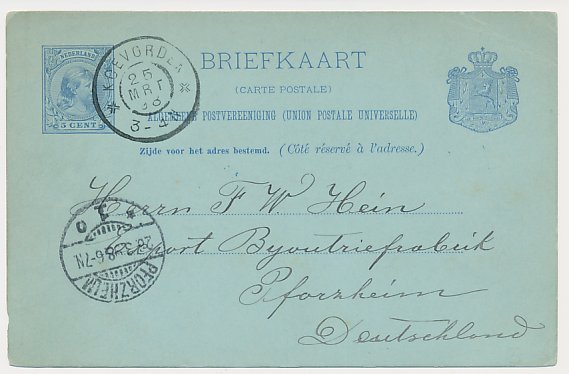 NEDERLAND
5 CENT
KOEVORDEN
25
MRT
98
3-4
BRIEFKAART
(CARTE POSTALE)
ALGEMEENE POSTVEREENIGING (UNION POSTALE UNIVERSELLE)
Zijde voor het adres bestemd. (Côté réservé à l'adresse.)
Herrn F W Hein
Export Byoutriefabrik
Pforzheim
Deutschland
PFORZHEIM
6-7N